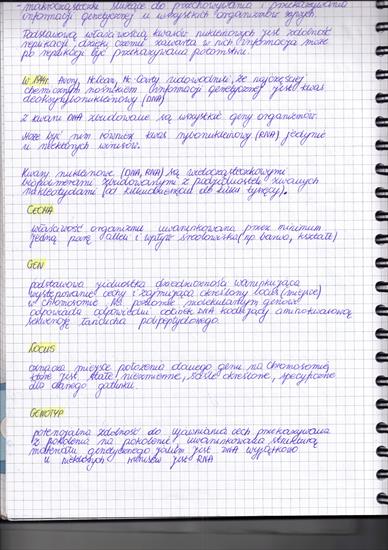 - makrocząsteczki służące do przechowywania i przekazywania
informacji genetycznej u wszystkich organizmów żywych.
Podstawową właściwością kwasów nukleinowych jest zdolność
replikacji, dzięki czemu zawarta w nich informacja może
po replikacji być przekazywana potomstwu.
W 1944r. Avery, McCarty udowodnili, że najczęściej
chemicznym nośnikiem informacji genetycznej jest kwas
deoksyrybonukleinowy (DNA)
Z kwasu DNA zbudowane są wszystkie geny organizmów.
Może być nim również kwas rybonukleinowy (RNA) jedynie
u niektórych wirusów.
Kwasy nukleinowe (DNA, RNA) są wielocząsteczkowymi
biopolimerami zbudowanymi z podjednostek zwanych
nukleotydami (od kilkudziesięciu do kilku tysięcy).
CECHA
właściwość organizmu uwarunkowana przez minimum
jedną parę alleli i wpływ środowiska (np barwa, kształt)
GEN
podstawowa jednostka dziedziczności warunkująca
występowanie cechy i zajmująca określony locus (miejsce)
w chromosomie. Na poziomie molekularnym genowi
odpowiada odpowiedni odcinek DNA kodujący aminokwasową
sekwencję łańcucha polipeptydowego.
LOCUS
oznacza miejsce położenia danego genu na chromosomie,
które jest stałe, niezmienne, ściśle określone, specyficzne
dla danego gatunku.
GENOTYP
potencjalna zdolność do ujawniania cech przekazywana
z pokolenia na pokolenie uwarunkowana strukturą
materiału genetycznego jakim jest DNA wyjątkowo
u niektórych wirusów jest RNA